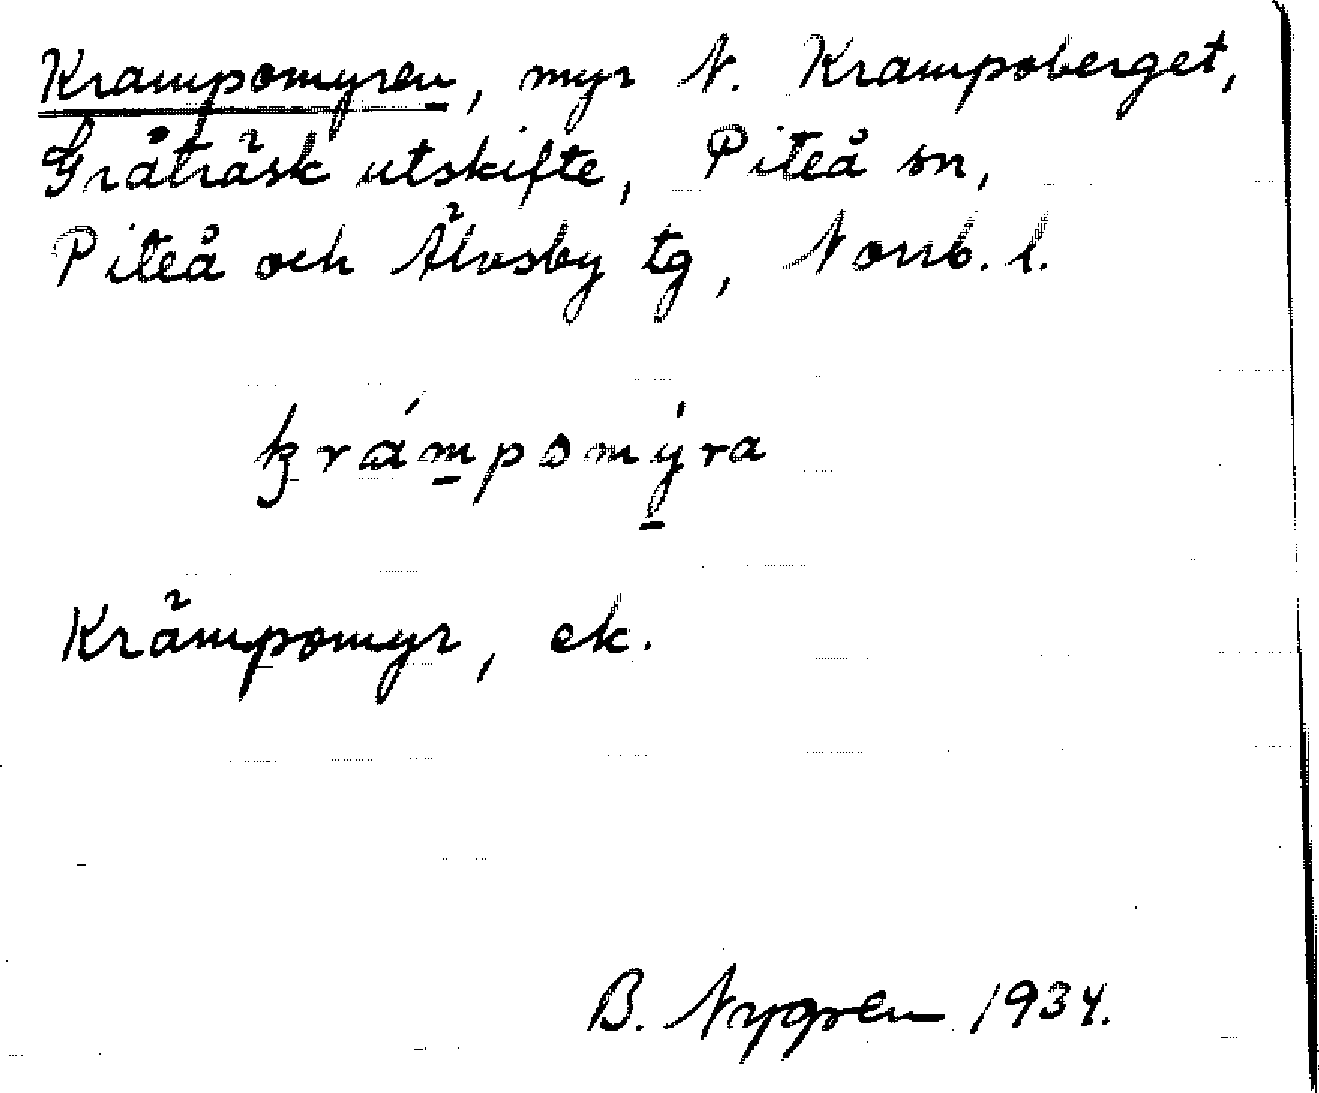 Krampomyren, myr N. Krampoberget,
Gråträsk utskifte, Piteå sn,
Piteå och Älvsby tg, Norrb. l.
krámpomýra
Krämpomyr, ek.
B. Nygren 1934.